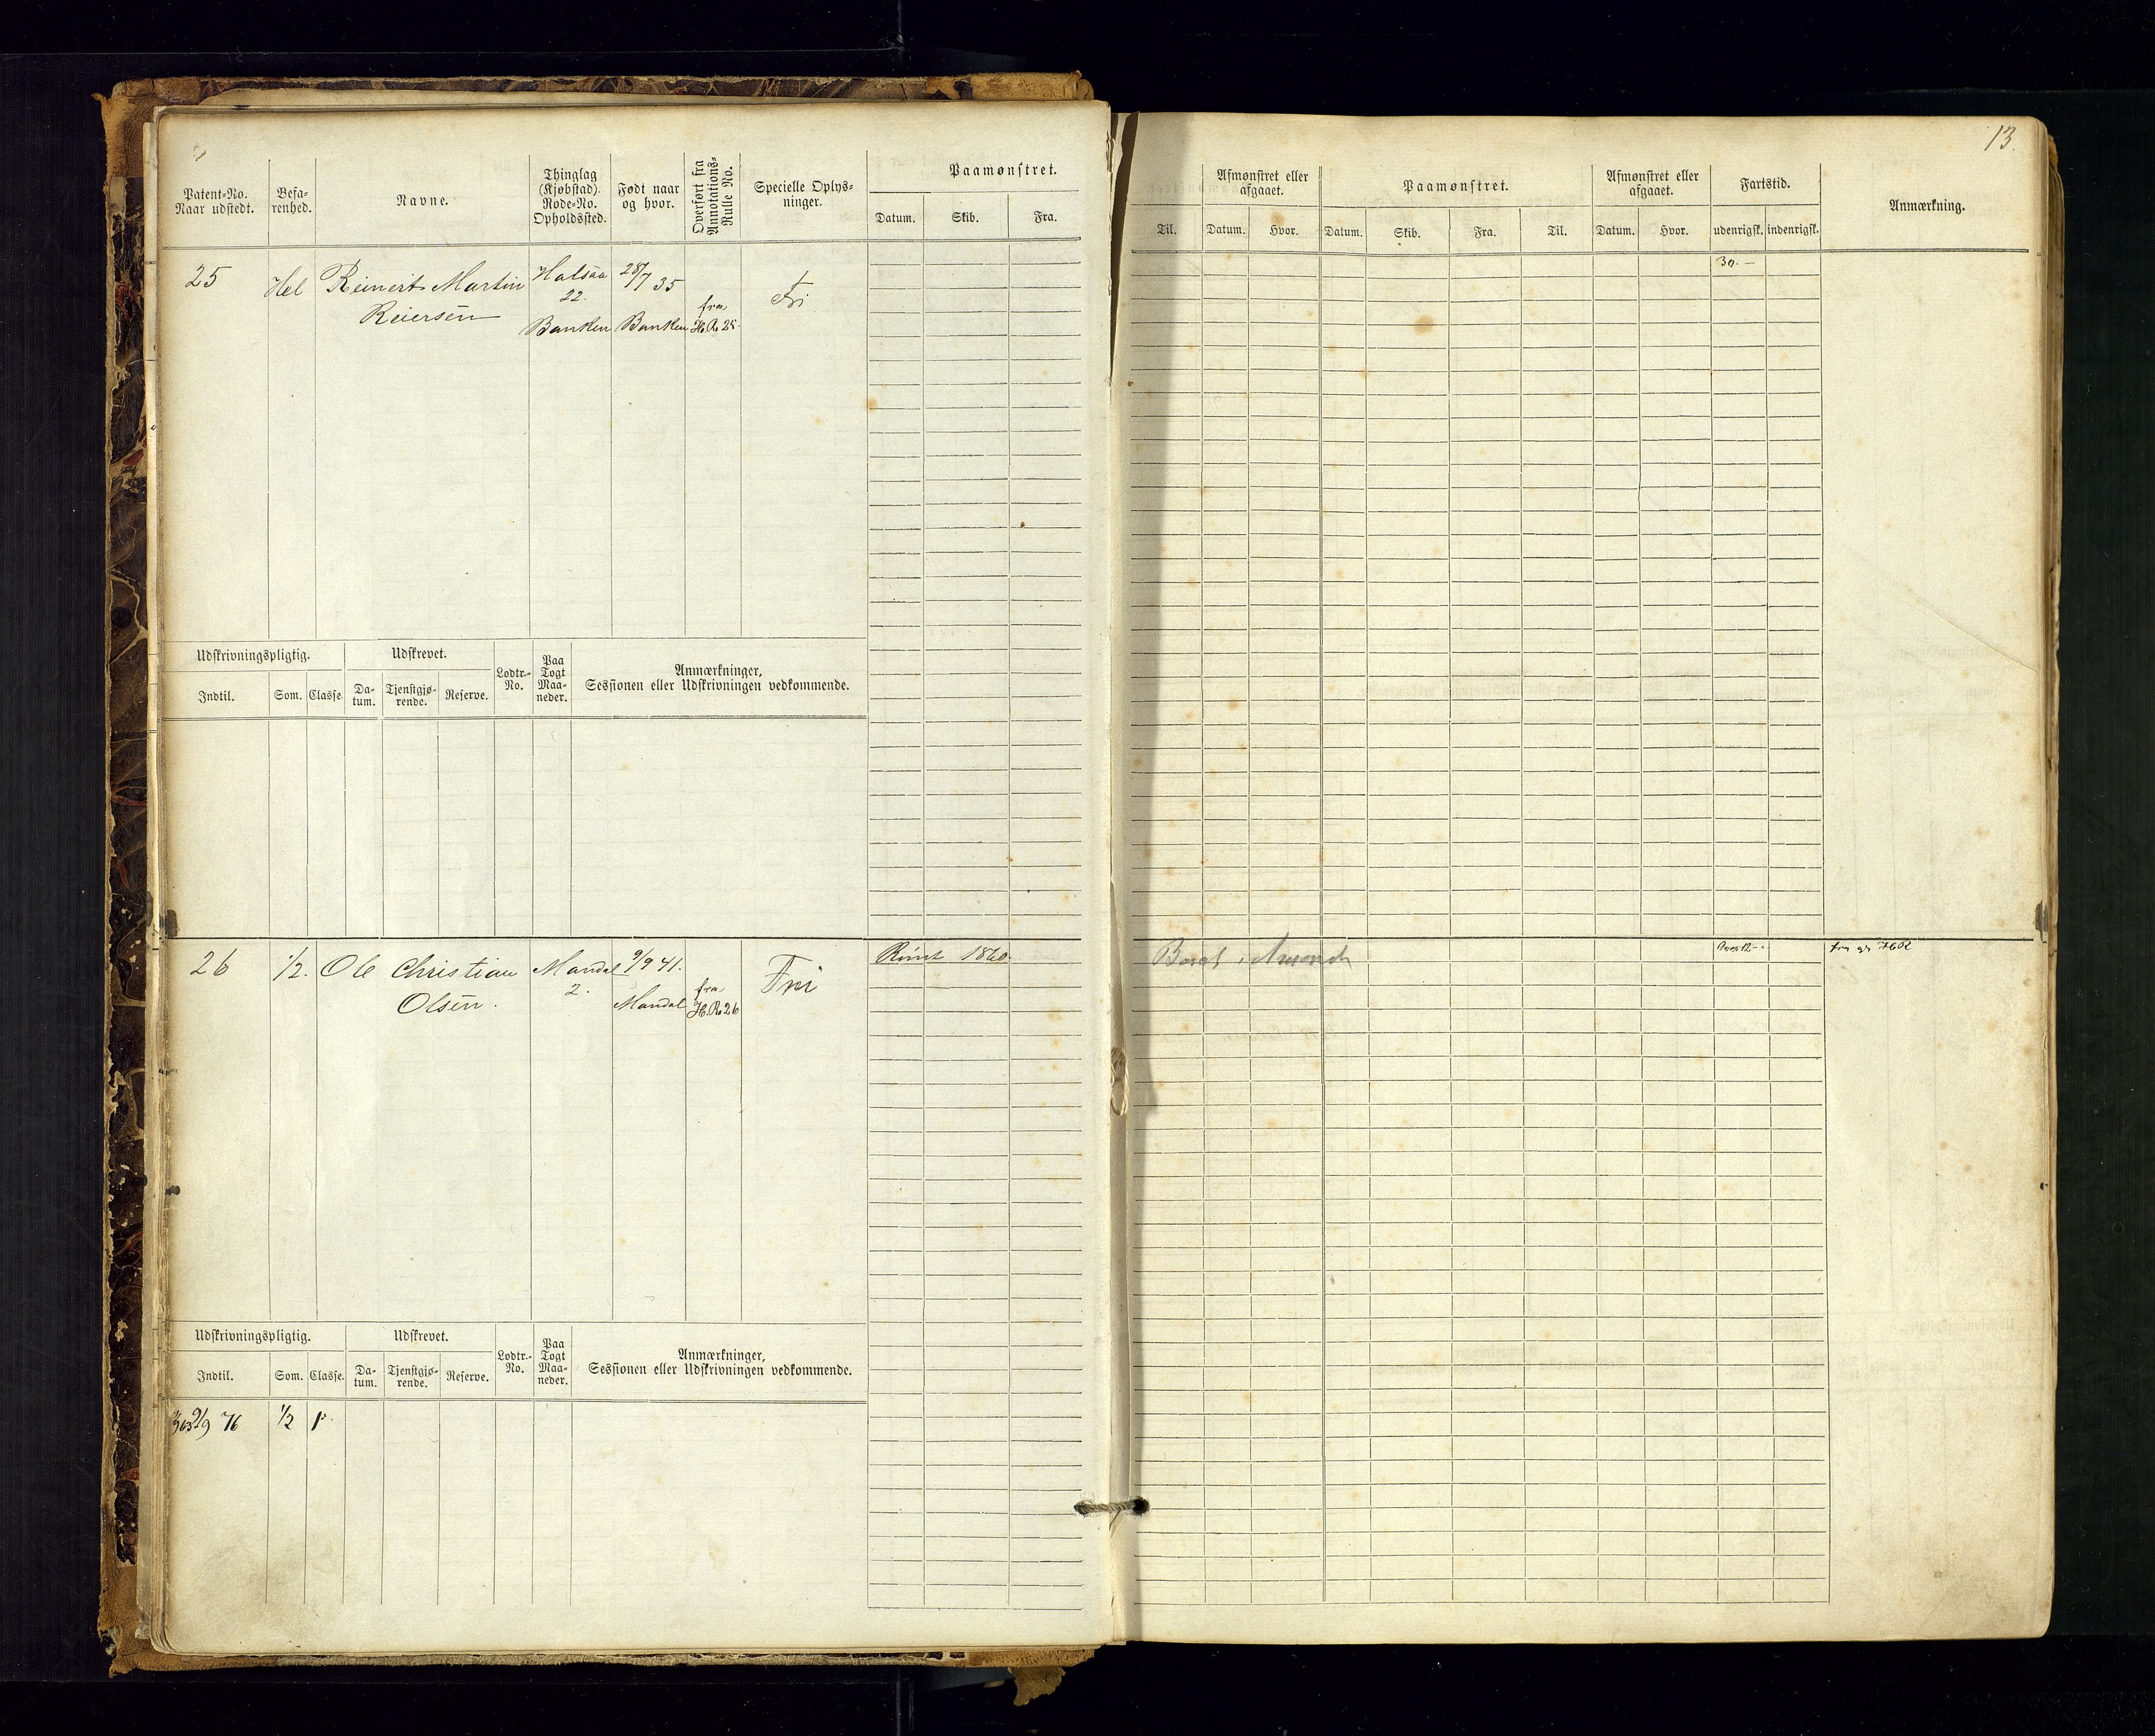 13.
Patent-No.
Naar udstedt.
Befa-
renhed.
Navne.
Thinglag
(Kjøbstad).
Rode-No.
Opholdssted.
Født naar
og hvor.
Overført fra
Annotations-
Rulle No.
Specielle Oplys-
ninger.
Paamønstret.
Datum. Skib. Fra.
Til.
Afmønstret eller
afgaaet.
Datum. Hvor.
Paamønstret.
Datum. Skib. Fra. Til.
Afmønstret eller
afgaaet.
Datum. Hvor.
Fartstid.
udenrigsk. indenrigsk.
Anmærkning.
25 Hel Reinert Martin
Reiersen
Halsaa
22.
Banken
28/7 35
Banken
fra
H.R. 25
Fri
30. —
Udskrivningspligtig.
Indtil. Som. Classe.
Udskrevet.
Da-
tum.
Tjenstgjø-
rende.
Reserve.
Lodtr.-
No.
Paa
Togt
Maa-
neder.
Anmærkninger,
Sessionen eller Udskrivningen vedkommende.
26 1/2. Ole Christian
Olsen.
Mandal
2.
9/9 41.
Mandal
fra
H.R. 26
Fri
Rømt 1860.
Udskrivningspligtig.
Indtil. Som. Classe.
Udskrevet.
Da-
tum.
Tjenstgjø-
rende.
Reserve.
Lodtr.-
No.
Paa
Togt
Maa-
neder.
Anmærkninger,
Sessionen eller Udskrivningen vedkommende.
76 1/2